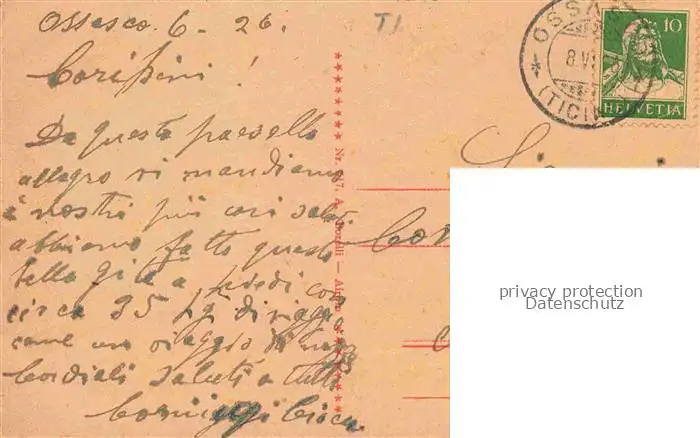 Ossasco 6 - 26.
TI
Carissimi!
Da questo paesello
allegro vi mandiamo
i nostri più cari saluti
abbiamo fatto questa
bella gita a piedi con
circa 35 kg di viaggio
come un viaggio di
Cordiali saluti a tutti
OSSA
8.VI
(TICI
10
HELVETIA
Nr.
— Airolo
privacy protection
Datenschutz